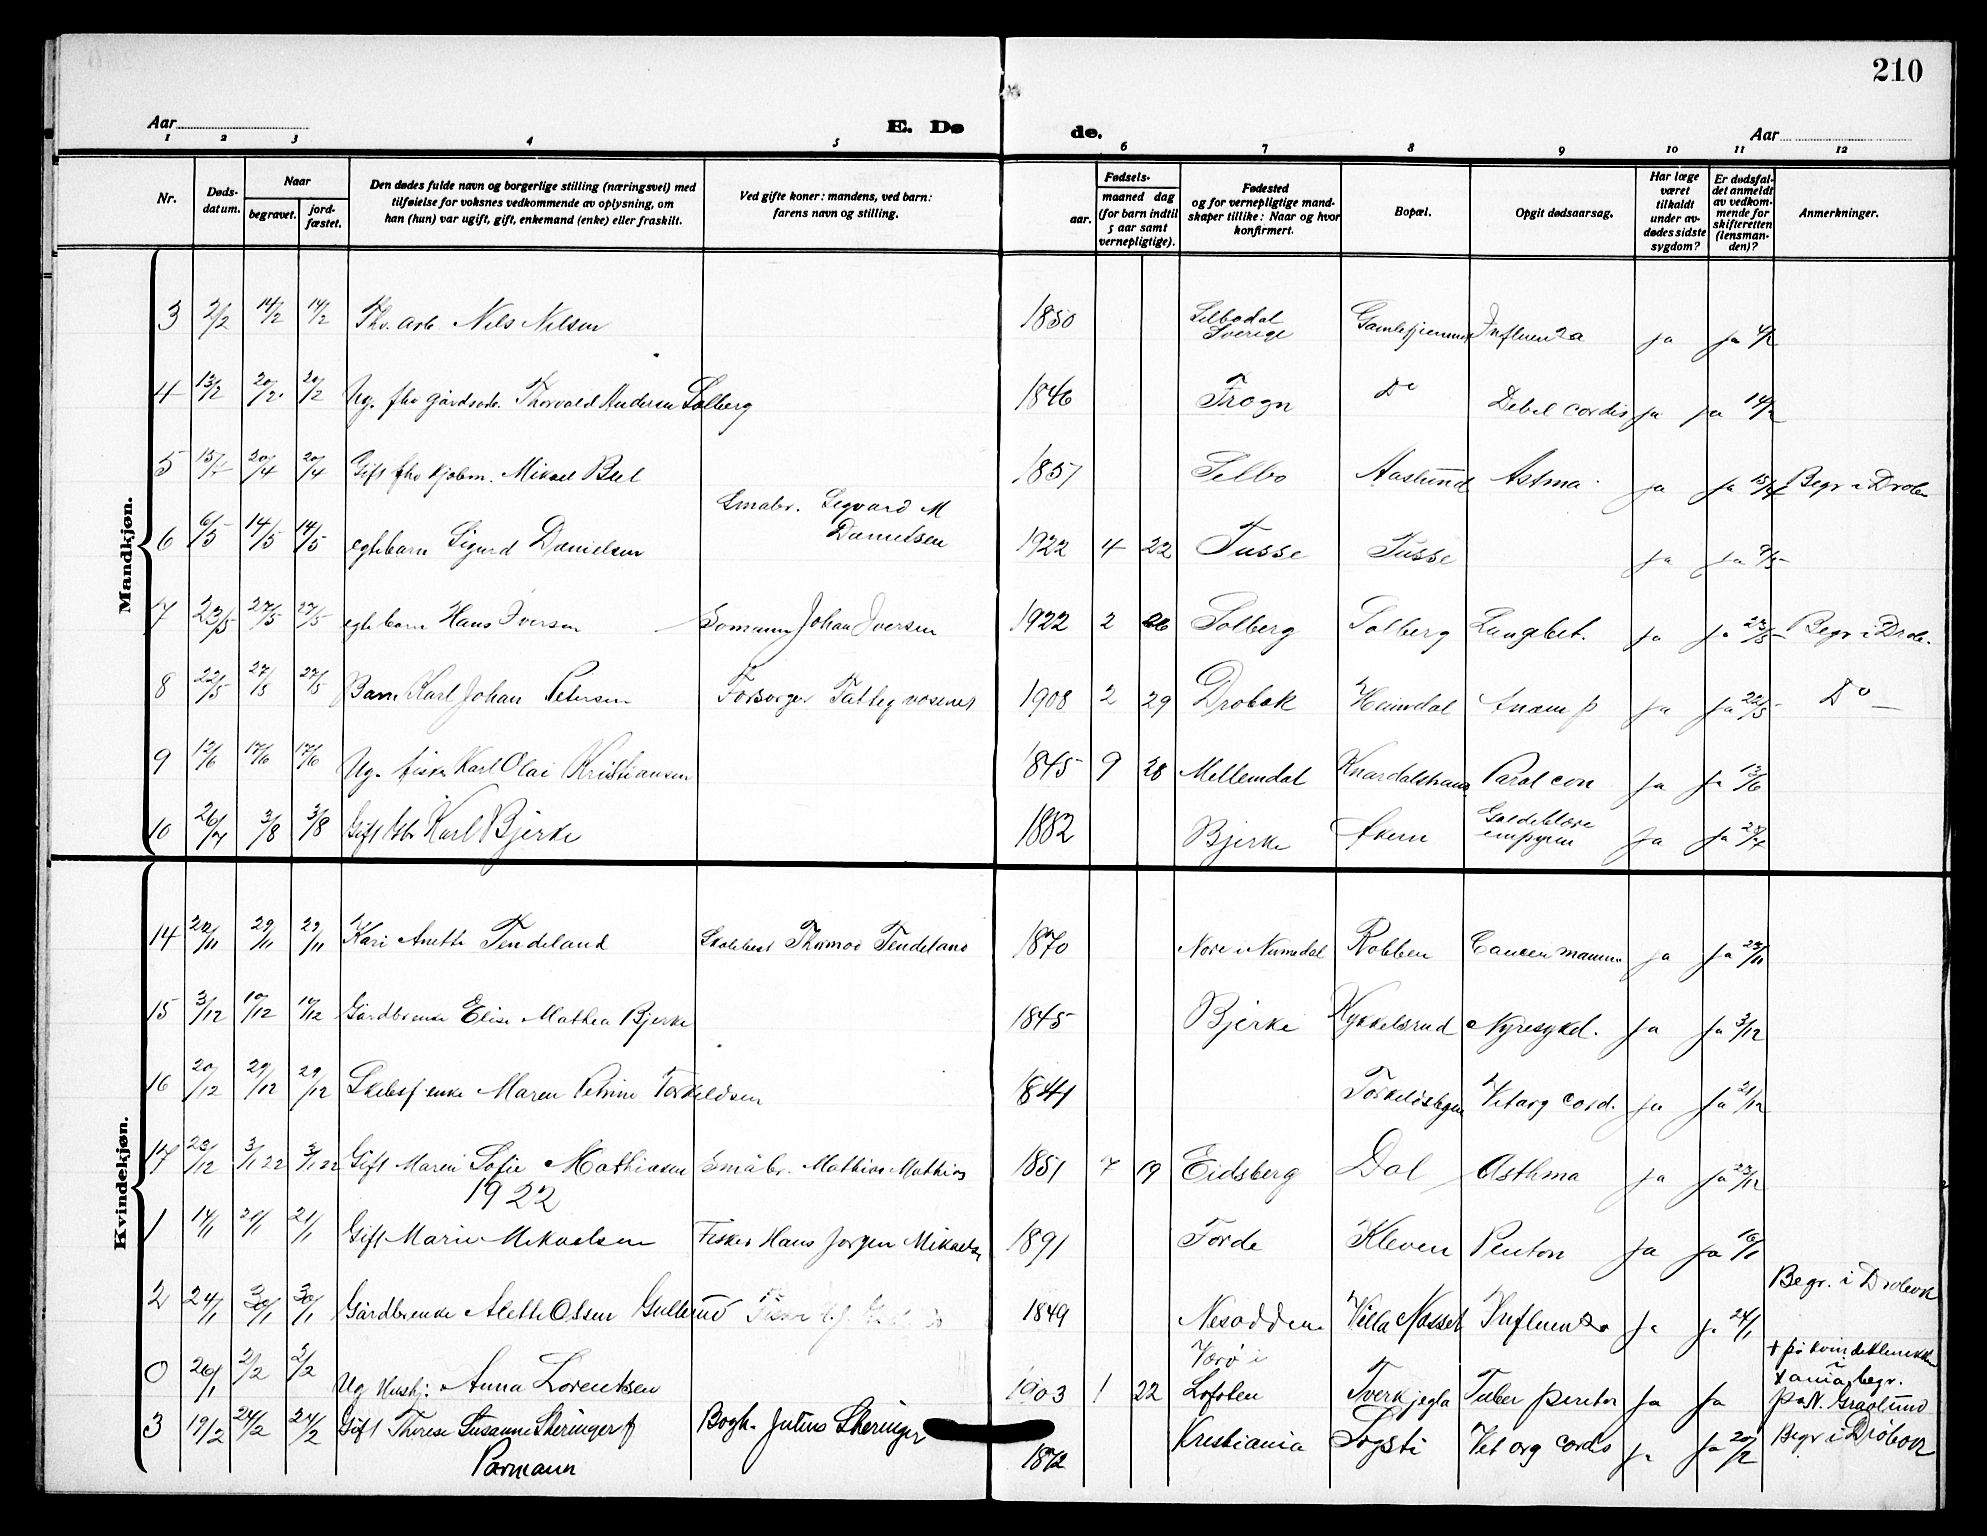 210
Aar
E. Dø
de.
Aar
1 2 3 4 5 6 7 8 9 10 11 12
Nr.
Døds-
datum.
Naar
begravet.
jord-
fæstet.
Den dødes fulde navn og borgerlige stilling (næringsvei) med
tilføielse for voksnes vedkommende av oplysning, om
han (hun) var ugift, gift, enkemand (enke) eller fraskilt.
Ved gifte koner: mandens, ved barn:
farens navn og stilling.
Fødsels-
aar.
maaned dag
(for barn indtil
5 aar samt
vernepligtige).
Fødested
og for vernepligtige mand-
skaper tillike: Naar og hvor
konfirmert.
Bopæl.
Opgit dødsaarsag.
Har læge
været
tilkaldt
under av-
dødes sidste
sygdom?
Er dødsfal-
det anmeldt
av vedkom-
mende for
skifteretten
(lensman-
den)?
Anmerkninger.
Mandkjøn.
3 2/2 14/2 14/2 Fhv. arb. Nils Nilsen 1850 Silbodal
Sverige Influenza ja ja 4/2
4 13/2 20/2 20/2 Ug. fhv gårdarb. Thorvald Andersen Solberg 1846 Frogn Do Debil cordis ja ja 14/2
5 15/4 20/4 20/4 Gift fhv kjøbm. Mikael Bul 1857 Selbo Aaslund Astma ja ja 15/4 Begr i Drøb
6 6/5 14/5 14/5 egtebarn Sigurd Danielsen Småbr. Segvard M
Danielsen 1922 4 22 Tusse Tusse ja ja 7/5
7 23/5 27/5 27/5 egtebarn Hans Iversen Sømann Johan Iversen 1922 2 26 Solberg Solberg Lungebet. ja ja 23/5 Begr i Drøb.
8 22/5 27/5 27/5 Barn Karl Johan Petersen Forsørger Fattigvæsenet 1908 2 29 Drøbak Heimdal ja ja 22/5 Do
9 12/6 17/6 17/6 Ug. fisker Karl Olai Kristiansen 1845 9 28 Mellemdal Paral con ja ja 13/6
10 26/7 3/8 3/8 Gift Karl Bjerke 1882 Bjerke Galdeblære
empyem ja ja 27/7
Kvindekjøn.
14 22/11 29/11 29/11 Kari Anette Tendeland Skolebest Thomas Tendeland 1870 Nore i Numedal Robben Cancer mamm ja ja 23/11
15 3/12 10/12 10/12 Gårdbrenke Elise Mathea Bjerke 1845 Bjerke Kykkelsrud Nyresykd. ja ja 3/12
16 20/12 29/12 29/12 Skibsf. enke Maren Petrine Torkildsen 1841 Vit org cord. ja ja 21/12
17 23/12 3/1 22 3/1 22 Gift Maren Sofie Mathiasen Småbr. Mathias Mathias 1851 7 19 Eidsberg Dal Asthma ja ja 23/12
1922
1 14/1 21/1 21/1 Gift Marie Mikaelsen Fisker Hans Jørgen Mikaels 1891 Førde Kleven Periton ja ja 16/1
2 24/1 30/1 30/1 Gårdbrenke Alette Olsen Gullerud 1849 Nesodden Villa Nasset Influenza ja ja 24/1 Begr. i Drøbak
0 26/1 2/2 2/2 Ug Hushj. Anna Lorentsen 1903 1 22 Værø i
Lofoten Tuber periton ja ja + på kvindeklinikken
i
Xania, begr.
på N. Graslund
3 19/2 24/2 24/2 Gift Therese Susanne Skeringer f
Parmann Bogh. Julius Skeringer 1872 Kristiania Sogsti Vit org cordis ja ja 20/2 Begr i Drøbak